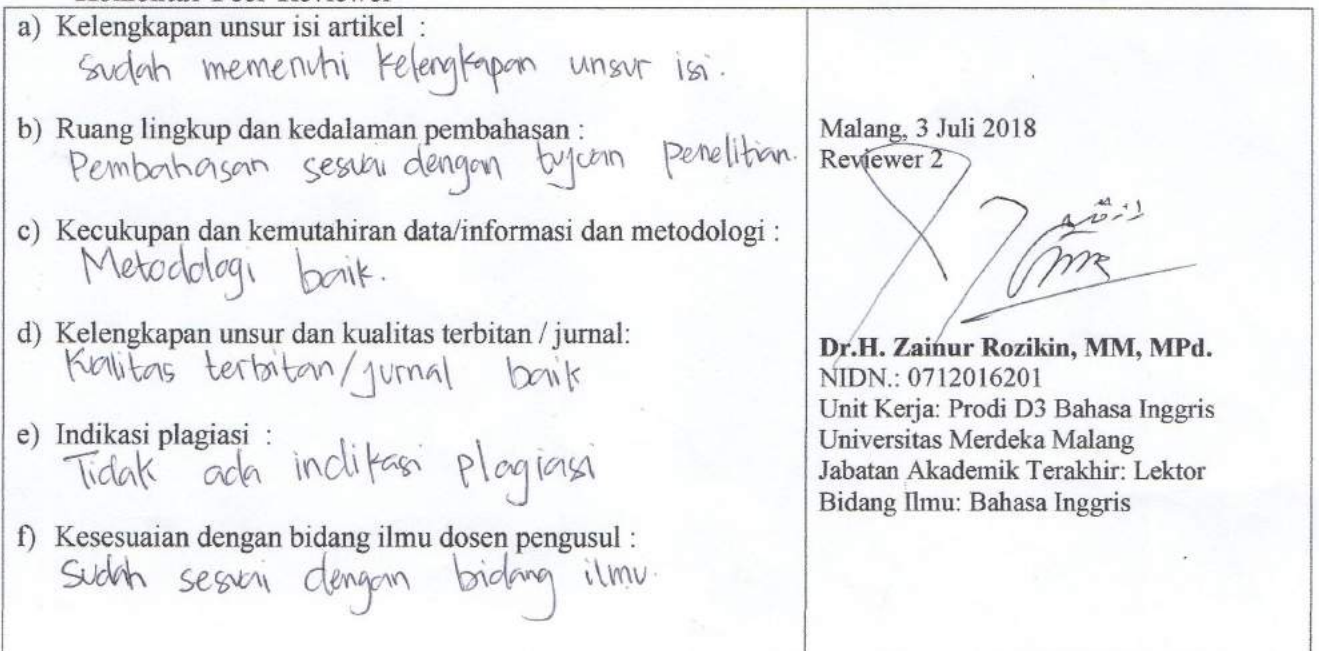 a) Kelengkapan unsur isi artikel :
Sudah memenuhi kelengkapan unsur isi.
b) Ruang lingkup dan kedalaman pembahasan :
Pembahasan sesuai dengan tujuan penelitian.
c) Kecukupan dan kemutahiran data/informasi dan metodologi :
Metodologi baik.
d) Kelengkapan unsur dan kualitas terbitan / jurnal:
Kualitas terbitan/jurnal baik
e) Indikasi plagiasi :
Tidak ada indikasi plagiasi
f) Kesesuaian dengan bidang ilmu dosen pengusul :
Sudah sesuai dengan bidang ilmu.
Malang, 3 Juli 2018
Reviewer 2
Dr.H. Zainur Rozikin, MM, MPd.
NIDN.: 0712016201
Unit Kerja: Prodi D3 Bahasa Inggris
Universitas Merdeka Malang
Jabatan Akademik Terakhir: Lektor
Bidang Ilmu: Bahasa Inggris